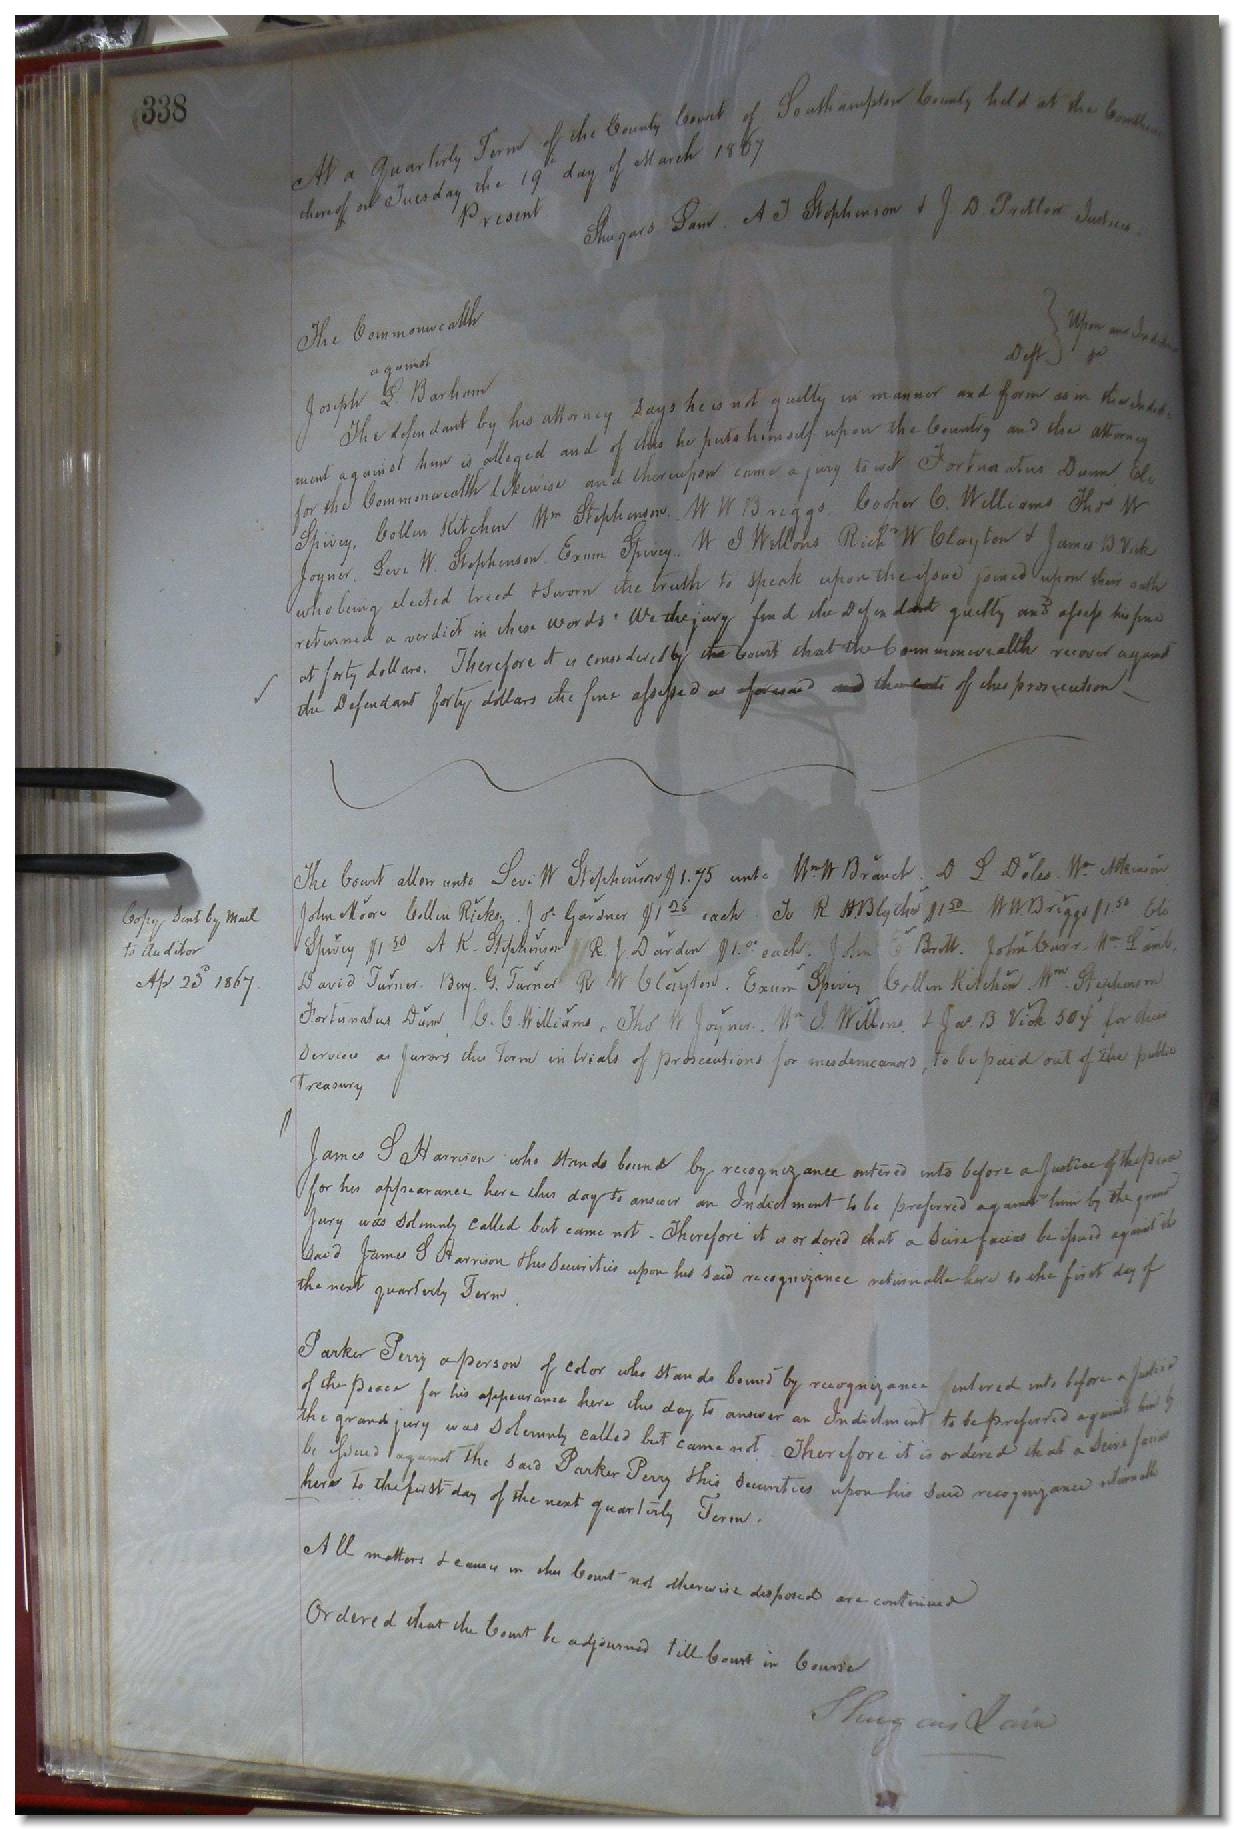 338
At a Quarterly Term of the County Court of Southampton County held at the Courthouse
thereof on Tuesday the 19th day of March 1867
Present
Shugars Lain. A T Stephenson & J. D. Pretlow Justices.
The Commonwealth
against
Joseph L Barham Deft } Upon an Indictment
The defendant by his attorney says he is not guilty in manner and form as in the Indict-
ment against him is alleged and of this he puts himself upon the Country and the attorney
for the Commonwealth likewise and thereupon came a jury to wit Fortunatus Dunn, Eli
Spivey, Collin Kitchen Wm Stephenson, W W Briggs. Cooper C. Williams Thos W
Joyner, Levi W. Stephenson. Exum Spivey. W J Willons Richd W Clayton & James B Vick
who being elected tried & sworn the truth to speak upon the issue joined upon their oath
returned a verdict in these words "We the jury find the Defendant guilty and assess his fine
at forty dollars. Therefore it is considered by the Court that the Commonwealth recover against
the Defendant forty dollars the fine assessed as aforesaid and the costs of this prosecution
The Court allow unto Levi W Stephenson $1.75 unto Wm W Branch. D L Doles. Wm Atkinson
John Moore Collin Ricks, J n Gardner $1 25 each To R H Blythe $1 50 W W Briggs $1.50 Eli
Spivey $1 50 A K Stephenson R. J Darden $1.00 each. John Britt. John Carr. Wm Lamb.
David Turner. Benj. G. Turner R W Clayton. Exum Spivey Collin Kitchen Wm Stephenson
Fortunatus Dunn C. C. Williams, Thos W Joyner. Wm J. Willons & Jas B Vick 50¢ for their
services as Jurors this Term in trials of prosecutions for misdemeanors, to be paid out of the public
Treasury
Copy sent by Mail
to Auditor
Ap 23d 1867.
James S Harrison who stands bound by recognizance entered into before a Justice of the peace
for his appearance here this day to answer an Indictment to be preferred against him by the grand
Jury was solemnly called but came not. Therefore it is ordered that a Scire facias be issued against the
said James S Harrison & his securities upon his said recognizance returnable here to the first day of
the next quarterly Term
Parker Perry a person of color who stands bound by recognizance entered into before a Justice
of the peace for his appearance here this day to answer an Indictment to be preferred against him by
the grand jury was solemnly called but came not. Therefore it is ordered that a Scire facias
be issued against the said Parker Perry & his securities upon his said recognizance returnable
here to the first day of the next quarterly Term.
All matters & causes in this Court not otherwise disposed are continued
Ordered that the Court be adjourned till Court in Course
Shugars Lain